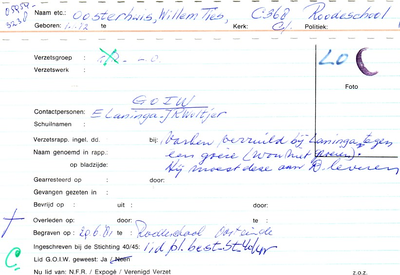 Naam etc.: Oosterhuis, Willem Ties, C368 Roodeschool
Geboren: 1-12 te : Kerk: Politiek:
Verzetsgroep : - - 0
Verzetswerk : LO
Foto
G O I W
Contactpersonen: E Laninga - J Kwiltjer
Schuilnamen :
Verzetsrapp. ingel. dd. bij: Varken, verruild bij Laninga tegen
Naam genoemd in rapp: een goeie (won met
op bladzijde: Hij moest deze aan D. leveren
Gearresteerd op : door:
Gevangen gezeten in :
Bevrijd op : uit : door:
Overleden op: door: te :
Begraven op : 20.6.81 Roodeschool
Ingeschreven bij de Stichting 40/45: lid pl. best. St.
Lid G.O.I.W. geweest: Ja / Neen
Nu lid van: N.F.R. / Expogé / Verenigd Verzet
z.o.z.